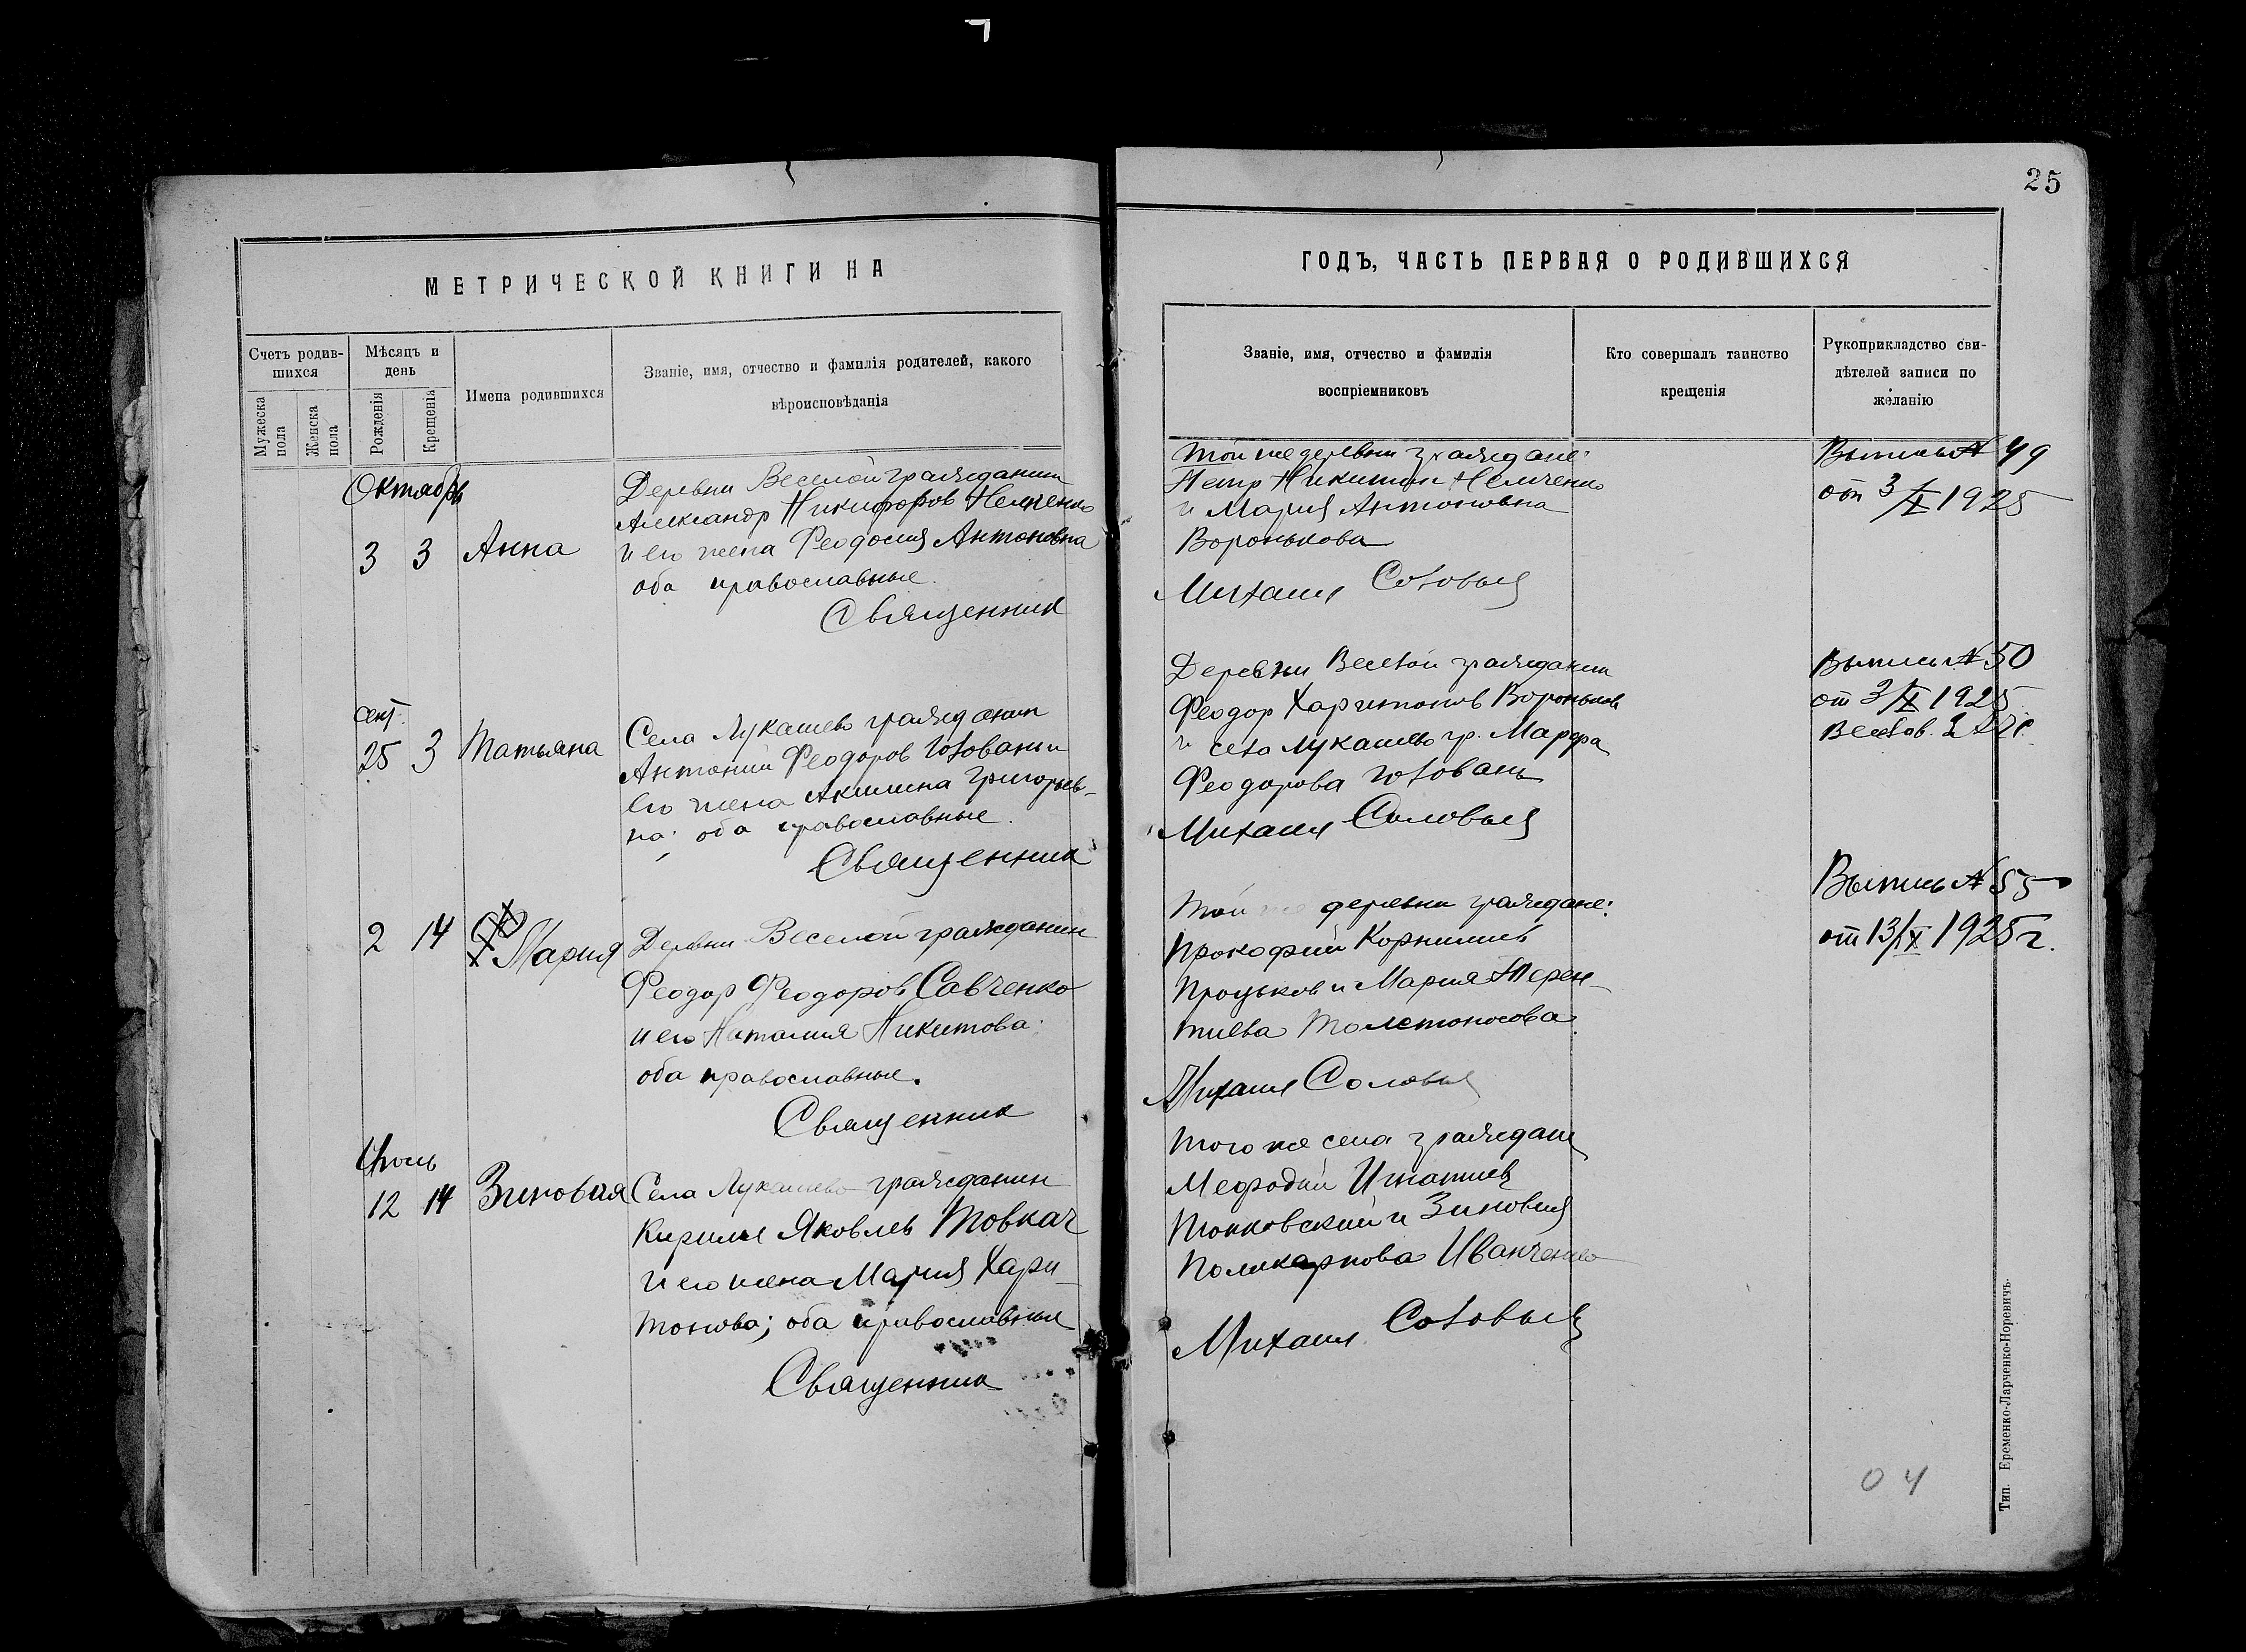 25
МЕТРИЧЕСКОЙ КНИГИ НА
Счетъ родив-
шихся
Мѣсяцъ и
день
Мужеска
пола
Женска
пола
Рожденія
Крещенія
Имена родившихся
Званіе, имя, отчество и фамилія родителей, какого
вѣроисповѣданія
Октябрь
3 3 Анна
Деревни Веселой гражданин
Александр Никифоров Немченко
и его жена Феодосия Антоновна
оба православные.
Священник
сент.
25 3 Татьяна
Села Лукашево гражданин
Антоний Феодоров Головань и
его жена Акилина Григорьев-
на; оба православные.
Священник
2 14 Мария
Деревни Веселой гражданин
Феодор Феодоров Савченко
и его Наталия Никитова;
оба православные.
Священник
12 14 Зиновия
Села Лукашево гражданин
Кирилл Яковлев Товкач
и его жена Мария Хари-
тонова; оба православные
Священник
ГОДЪ, ЧАСТЬ ПЕРВАЯ О РОДИВШИХСЯ
Званіе, имя, отчество и фамилія
воспріемниковъ
Кто совершалъ таинство
крещенія
Рукоприкладство сви-
дѣтелей записи по
желанію
Той же деревни граждане:
Петр Никитин Немченко
и Мария Антоновна
Воронькова
Михаил Соловьев
Выпись № 49
от 3/X 1925
Деревни Веселой гражданин
Феодор Харитонов Вороньков
и села Лукашево гр. Марфа
Феодорова Головань
Михаил Соловьев
Выпись № 50
от 3/X 1925
Той же деревни граждане:
Прокофий Корнилиев
Процьков и Мария Терен-
тиева Толстоносова.
Михаил Соловьев
Выпись № 55
от 13/X 1925 г.
Того же села граждане
Мефодий Игнатиев
и Зиновия
Поликарпова Иванченко
Михаил Соловьев
04
Тип. Еременко-Ларченко-Норевичъ.